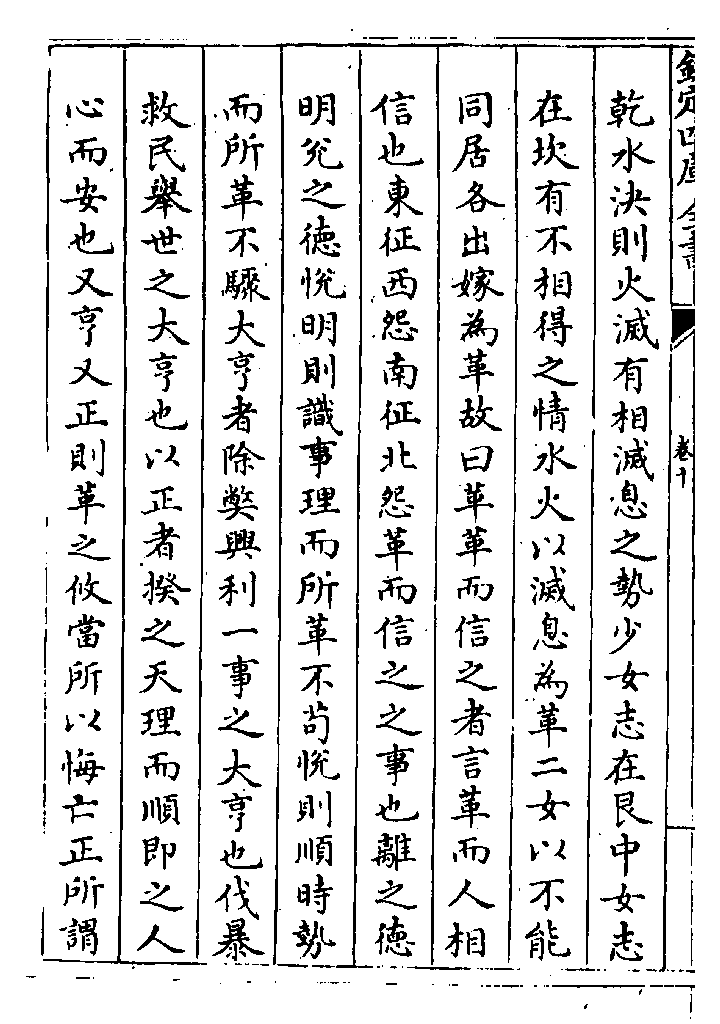 欽定四庫全書
卷十
乾水決則火滅有相滅息之勢少女志在艮中女志
在坎有不相得之情水火以滅息為革二女以不能
同居各出嫁為革故曰革革而信之者言革而人相
信也東征西怨南征北怨革而信之之事也離之德
明兊之德悅明則識事理而所革不苟悅則順時勢
而所革不驟大亨者除弊興利一事之大亨也伐暴
救民舉世之大亨也以正者揆之天理而順即之人
心而安也又亨又正則革之攸當所以悔亡正所謂